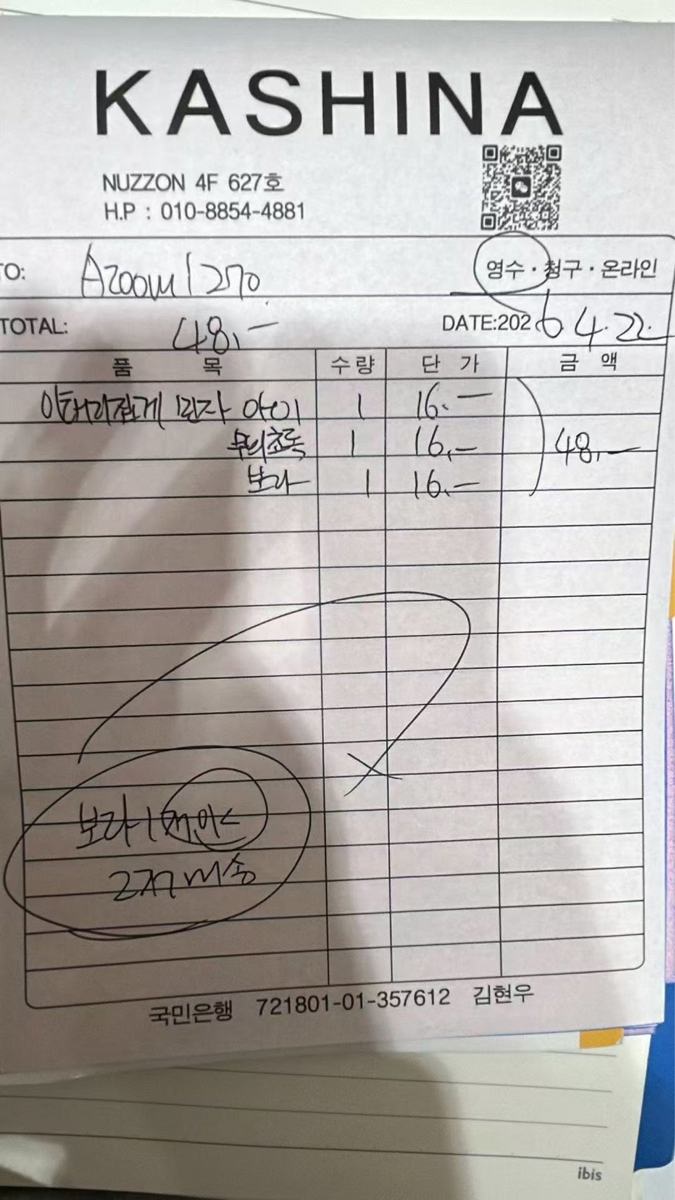 KASHINA
NUZZON 4F 627호
H.P : 010-8854-4881
TO: Azoom1270
영수 · 청구 · 온라인
TOTAL: 48,-
DATE:2026 4.22.
품 목 수량 단 가 금 액
아이 1 16.-
1 16,-
보라 1 16.-
48,-
보라 1
국민은행 721801-01-357612 김현우
ibis